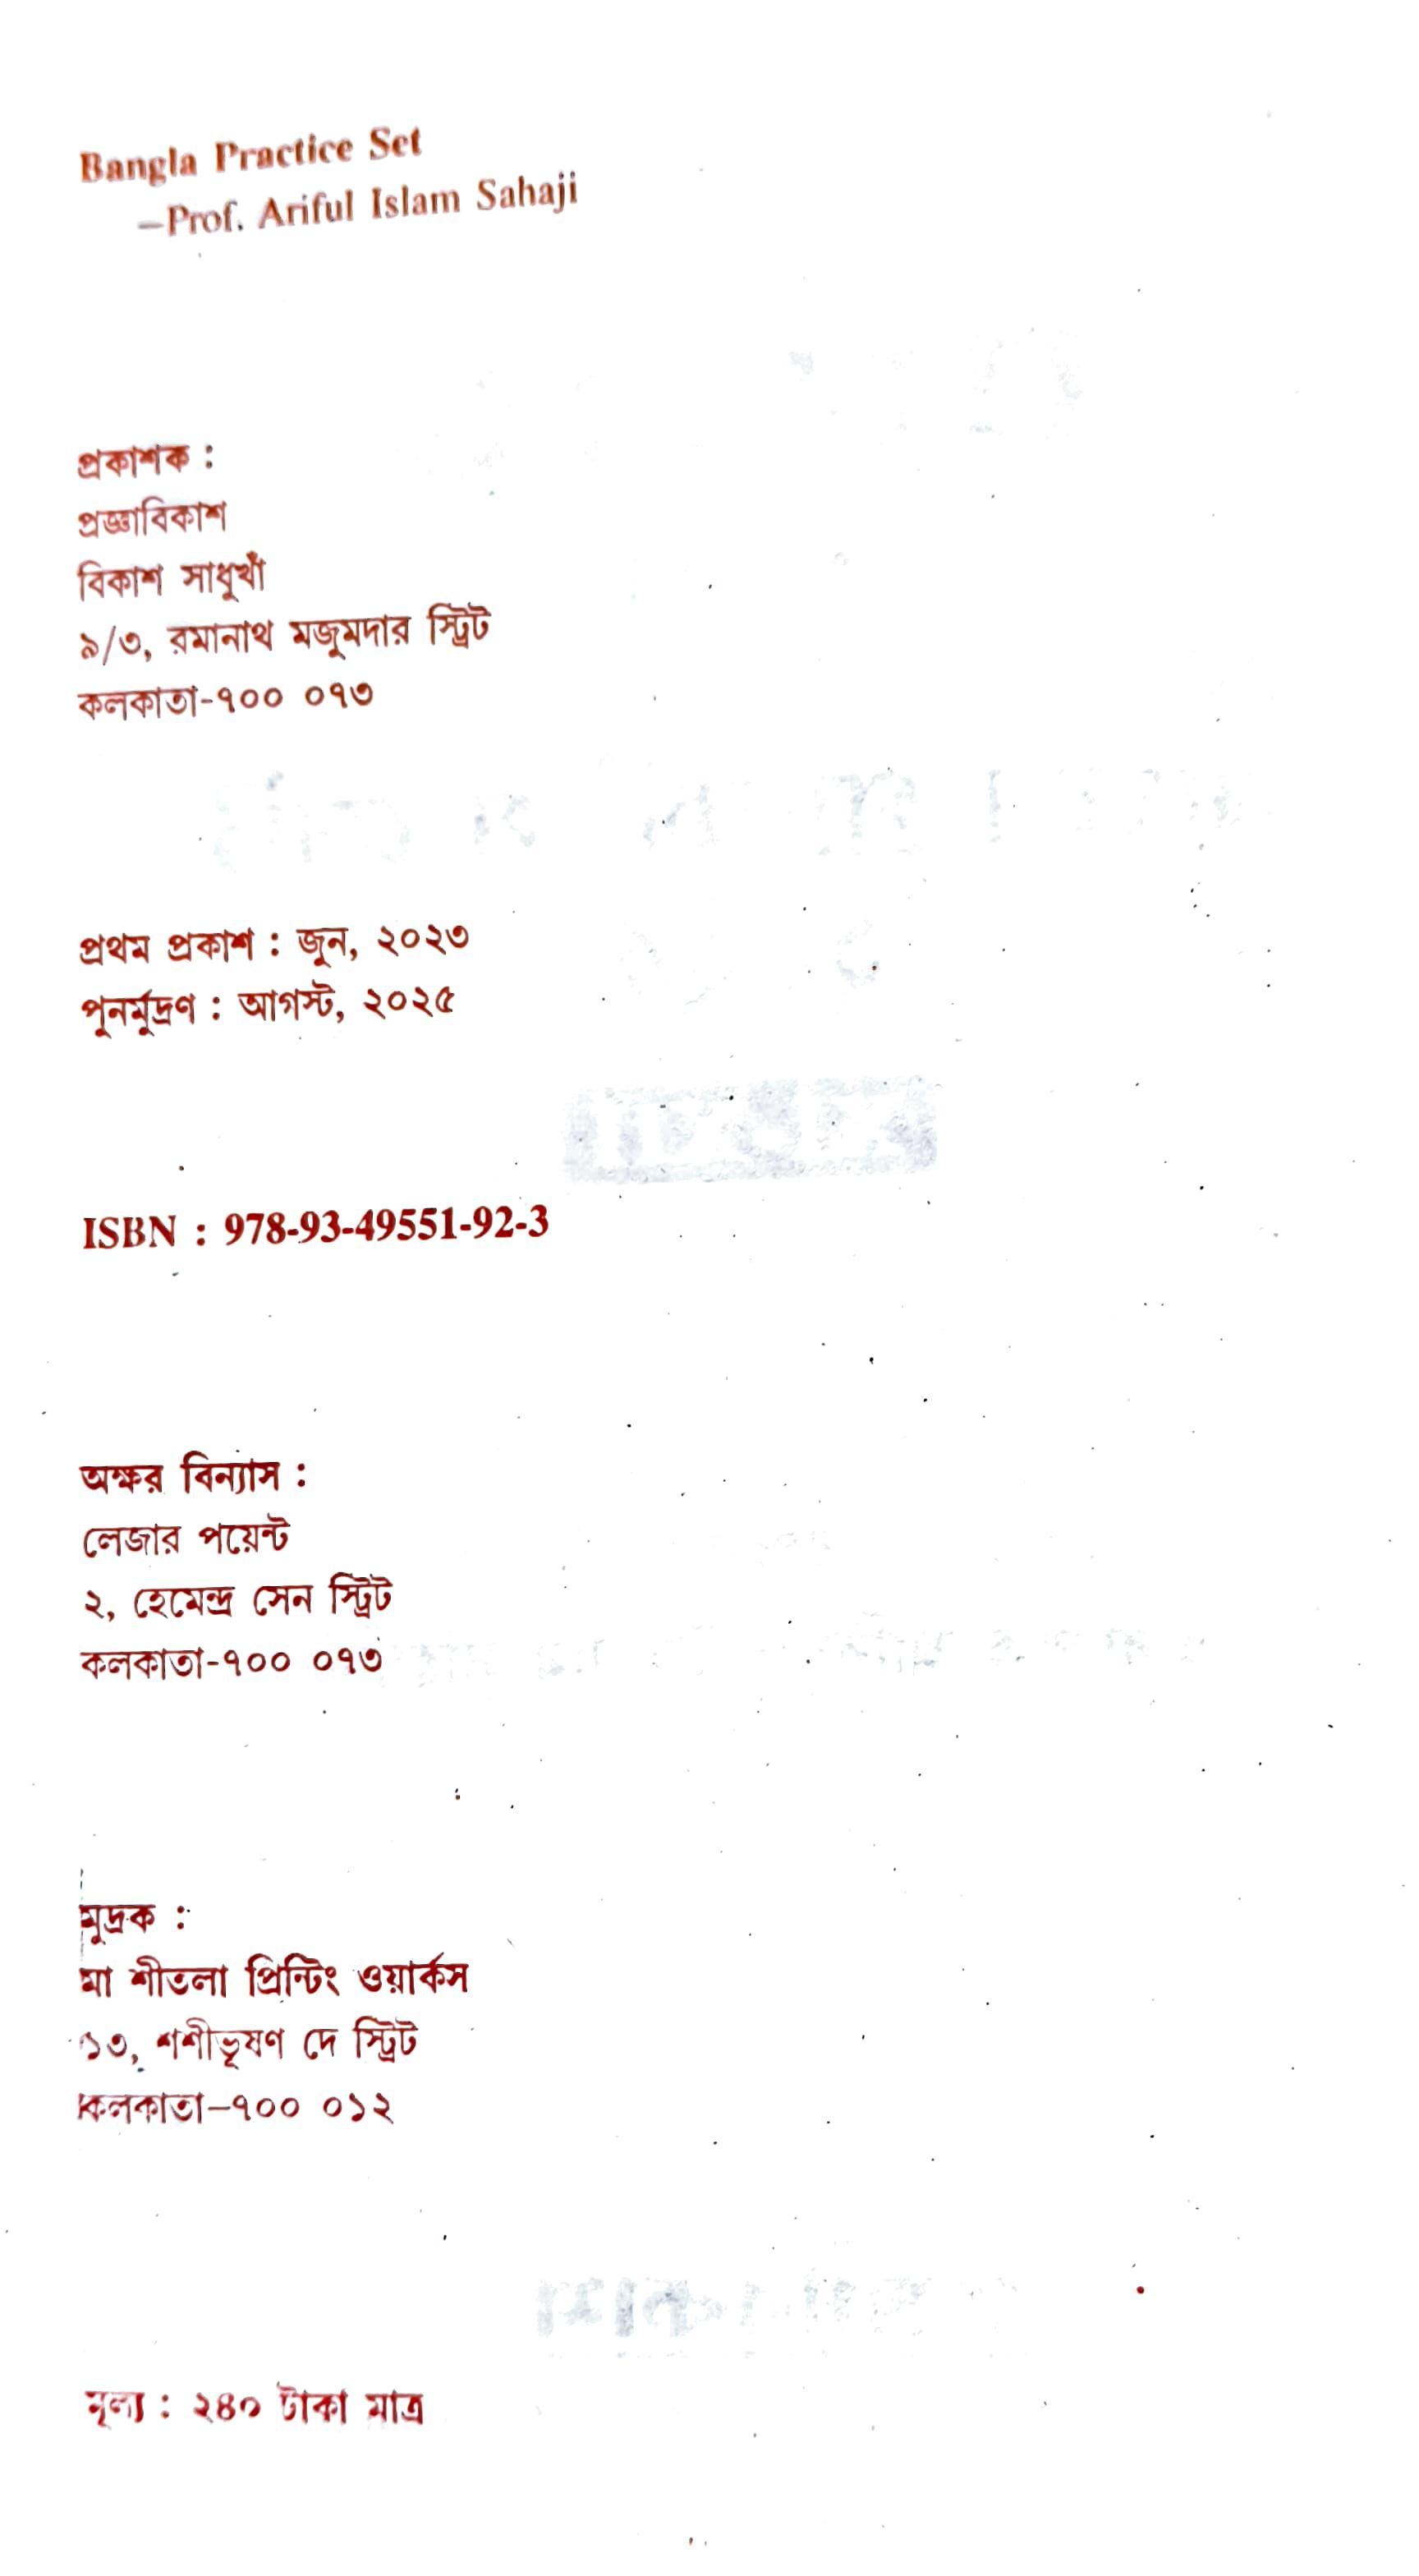 Bangla Practice Set
–Prof. Ariful Islam Sahaji
প্রকাশক :
প্রজ্ঞাবিকাশ
বিকাশ সাধুখাঁ
৯/৩, রমানাথ মজুমদার স্ট্রিট
কলকাতা-৭০০ ০৭৩
প্রথম প্রকাশ : জুন, ২০২৩
পুনর্মুদ্রণ : আগস্ট, ২০২৫
ISBN : 978-93-49551-92-3
অক্ষর বিন্যাস :
লেজার পয়েন্ট
২, হেমেন্দ্র সেন স্ট্রিট
কলকাতা-৭০০ ০৭৩
মুদ্রক :
মা শীতলা প্রিন্টিং ওয়ার্কস
১৩, শশীভূষণ দে স্ট্রিট
কলকাতা–৭০০ ০১২
মূল্য : ২৪০ টাকা মাত্র